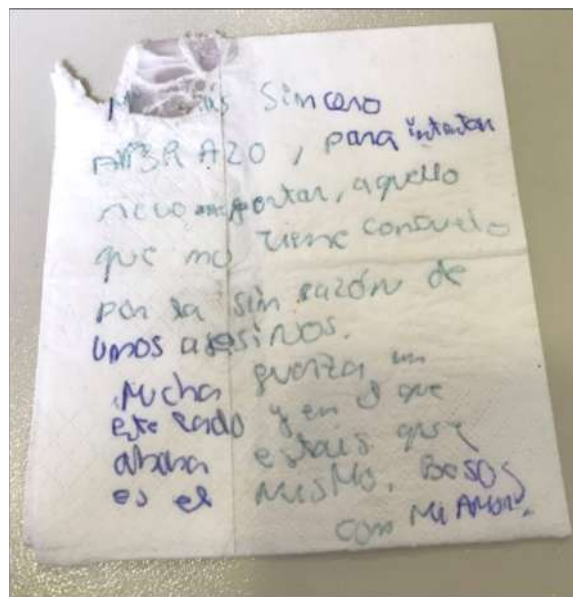 Mi más Sincero
ABRAZO, para intentar
reconfortar, aquello
que no tiene consuelo
por la sin razón de
unos asesinos.
Mucha fuerza en
este lado y en el que
ahora estáis que
es el mismo. Besos
con Mi Amor.